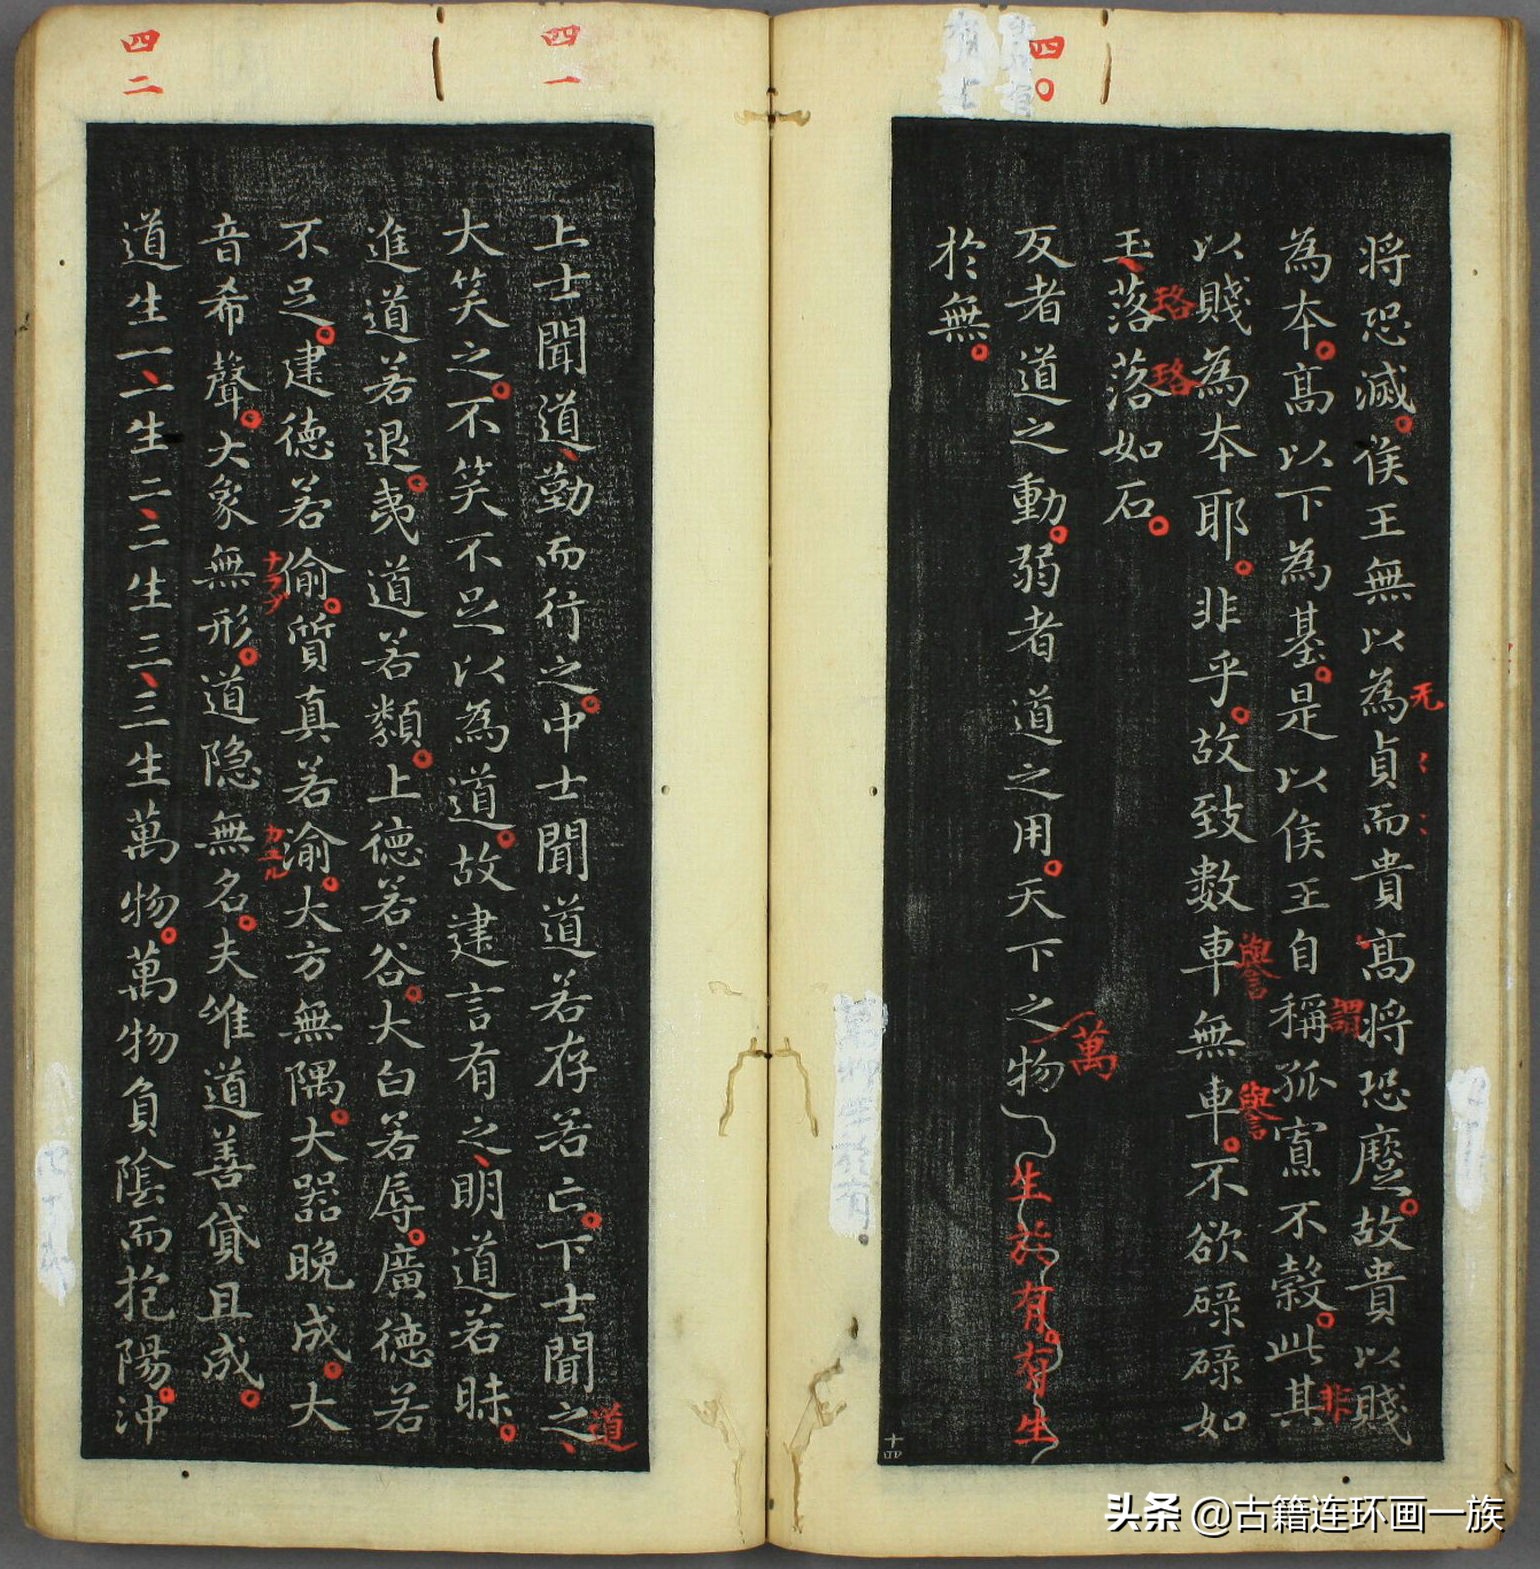 四〇
将恐滅。侯王無以為貞而貴高将恐蹷。故貴以賤
无
為本。高以下為基。是以侯王自稱孤寡不穀。此其
謂
非
以賤為本耶。非乎。故致數車無車。不欲碌碌如
譽
譽
玉、落落如石。
珞珞
反者道之動。弱者道之用。天下之物生於有。有生
萬
於無。
十四
四一
上士聞道、勤而行之。中士聞道若存若亡。下士聞之、
道
大笑之。不笑不足以為道。故建言有之、明道若昧。
進道若退。夷道若纇。上德若谷。大白若辱。廣德若
不足。建德若偷。質真若渝。大方無隅。大器晚成。大
カユル
音希聲。大象無形。道隐無名。夫唯道善貸且成。
四二
道生一、一生二、二生三、三生萬物。萬物負陰而抱陽。沖
头条 @古籍连环画一族